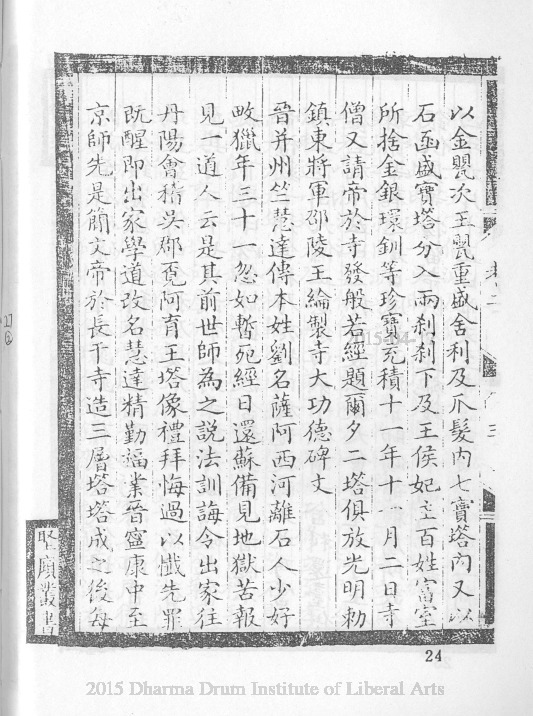 以金甖次玉甖重盛舍利及爪髮內七寶塔內又以
石函盛寶塔分入兩剎剎下及王侯妃主百姓富室
所捨金銀環釧等珍寶充積十一年十一月二日寺
僧又請帝於寺發般若經題爾夕二塔俱放光明勅
鎮東將軍邵陵王綸製寺大功德碑文
晉并州竺慧達傳本姓劉名薩阿西河離石人少好
畋獵年三十一忽如暫死經日還蘇備見地獄苦報
見一道人云是其前世師為之說法訓誨令出家往
丹陽會稽吳郡覓阿育王塔像禮拜悔過以懺先罪
既醒即出家學道改名慧達精勤福業晉寧康中至
京師先是簡文帝於長干寺造三層塔塔成之後每
堅願叢書
24
2015 Dharma Drum Institute of Liberal Arts